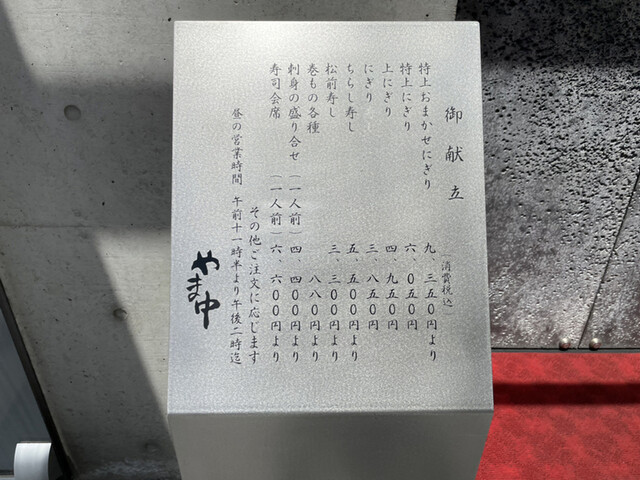 御献立
消費税込
特上おまかせにぎり 九、三五〇円より
特上にぎり 六、〇五〇円
上にぎり 四、九五〇円
にぎり 三、八五〇円
ちらし寿し 五、五〇〇円より
松前寿し 三、三〇〇円より
巻もの各種 八八〇円より
刺身の盛り合せ(一人前)四、四〇〇円より
寿司会席(一人前)六、六〇〇円より
その他ご注文に応じます
昼の営業時間 午前十一時半より午後二時迄
やま中